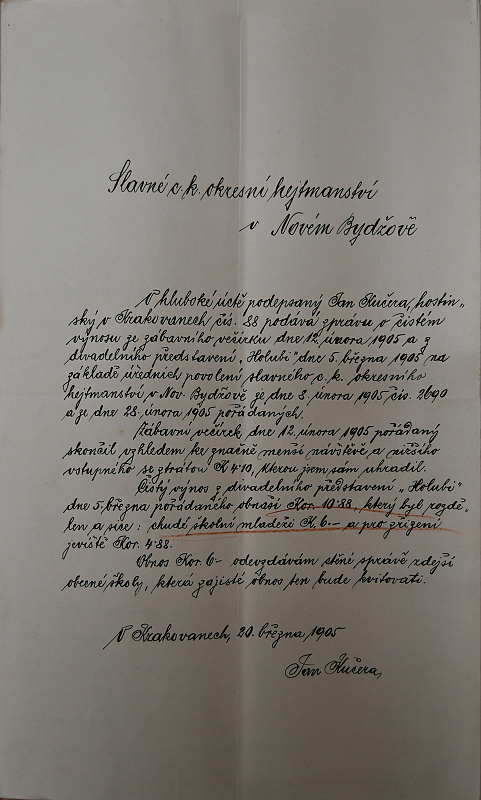 Slavné c. k. okresní hejtmanství
v Novém Bydžově
V hluboké úctě podepsaný Jan Kučera, hostin„
ský v Krakovanech čís. 88 podává zprávu o čistém
výnosu ze zábavního večírku dne 12. února 1905 a z
divadelního představení „Holubi" dne 5. března 1905, na
základě úředních povolení slavného c. k. okresního
hejtmanství v Nov. Bydžově ze dne 8. února 1905 čís. 2690
a ze dne 28. února 1905 pořádaných.
Zábavní večírek dne 12. února 1905 pořádaný
skončil vzhledem ke značně menší návštěvě a nižšího
vstupného se ztrátou K 4·10, kterou jsem sám uhradil.
Čistý výnos z divadelního představení „Holubi"
dne 5. března pořádaného obnáší Kor. 10·88, který byl rozdě„
len a sice: chudé školní mládeži K. 6– a pro zřízení
jeviště Kor. 4·88.
Obnos Kor. 6– odevzdávám ctěné správě zdejší
obecné školy, která zajisté obnos ten bude kvitovati.
V Krakovanech, 20. března, 1905
Jan Kučera,